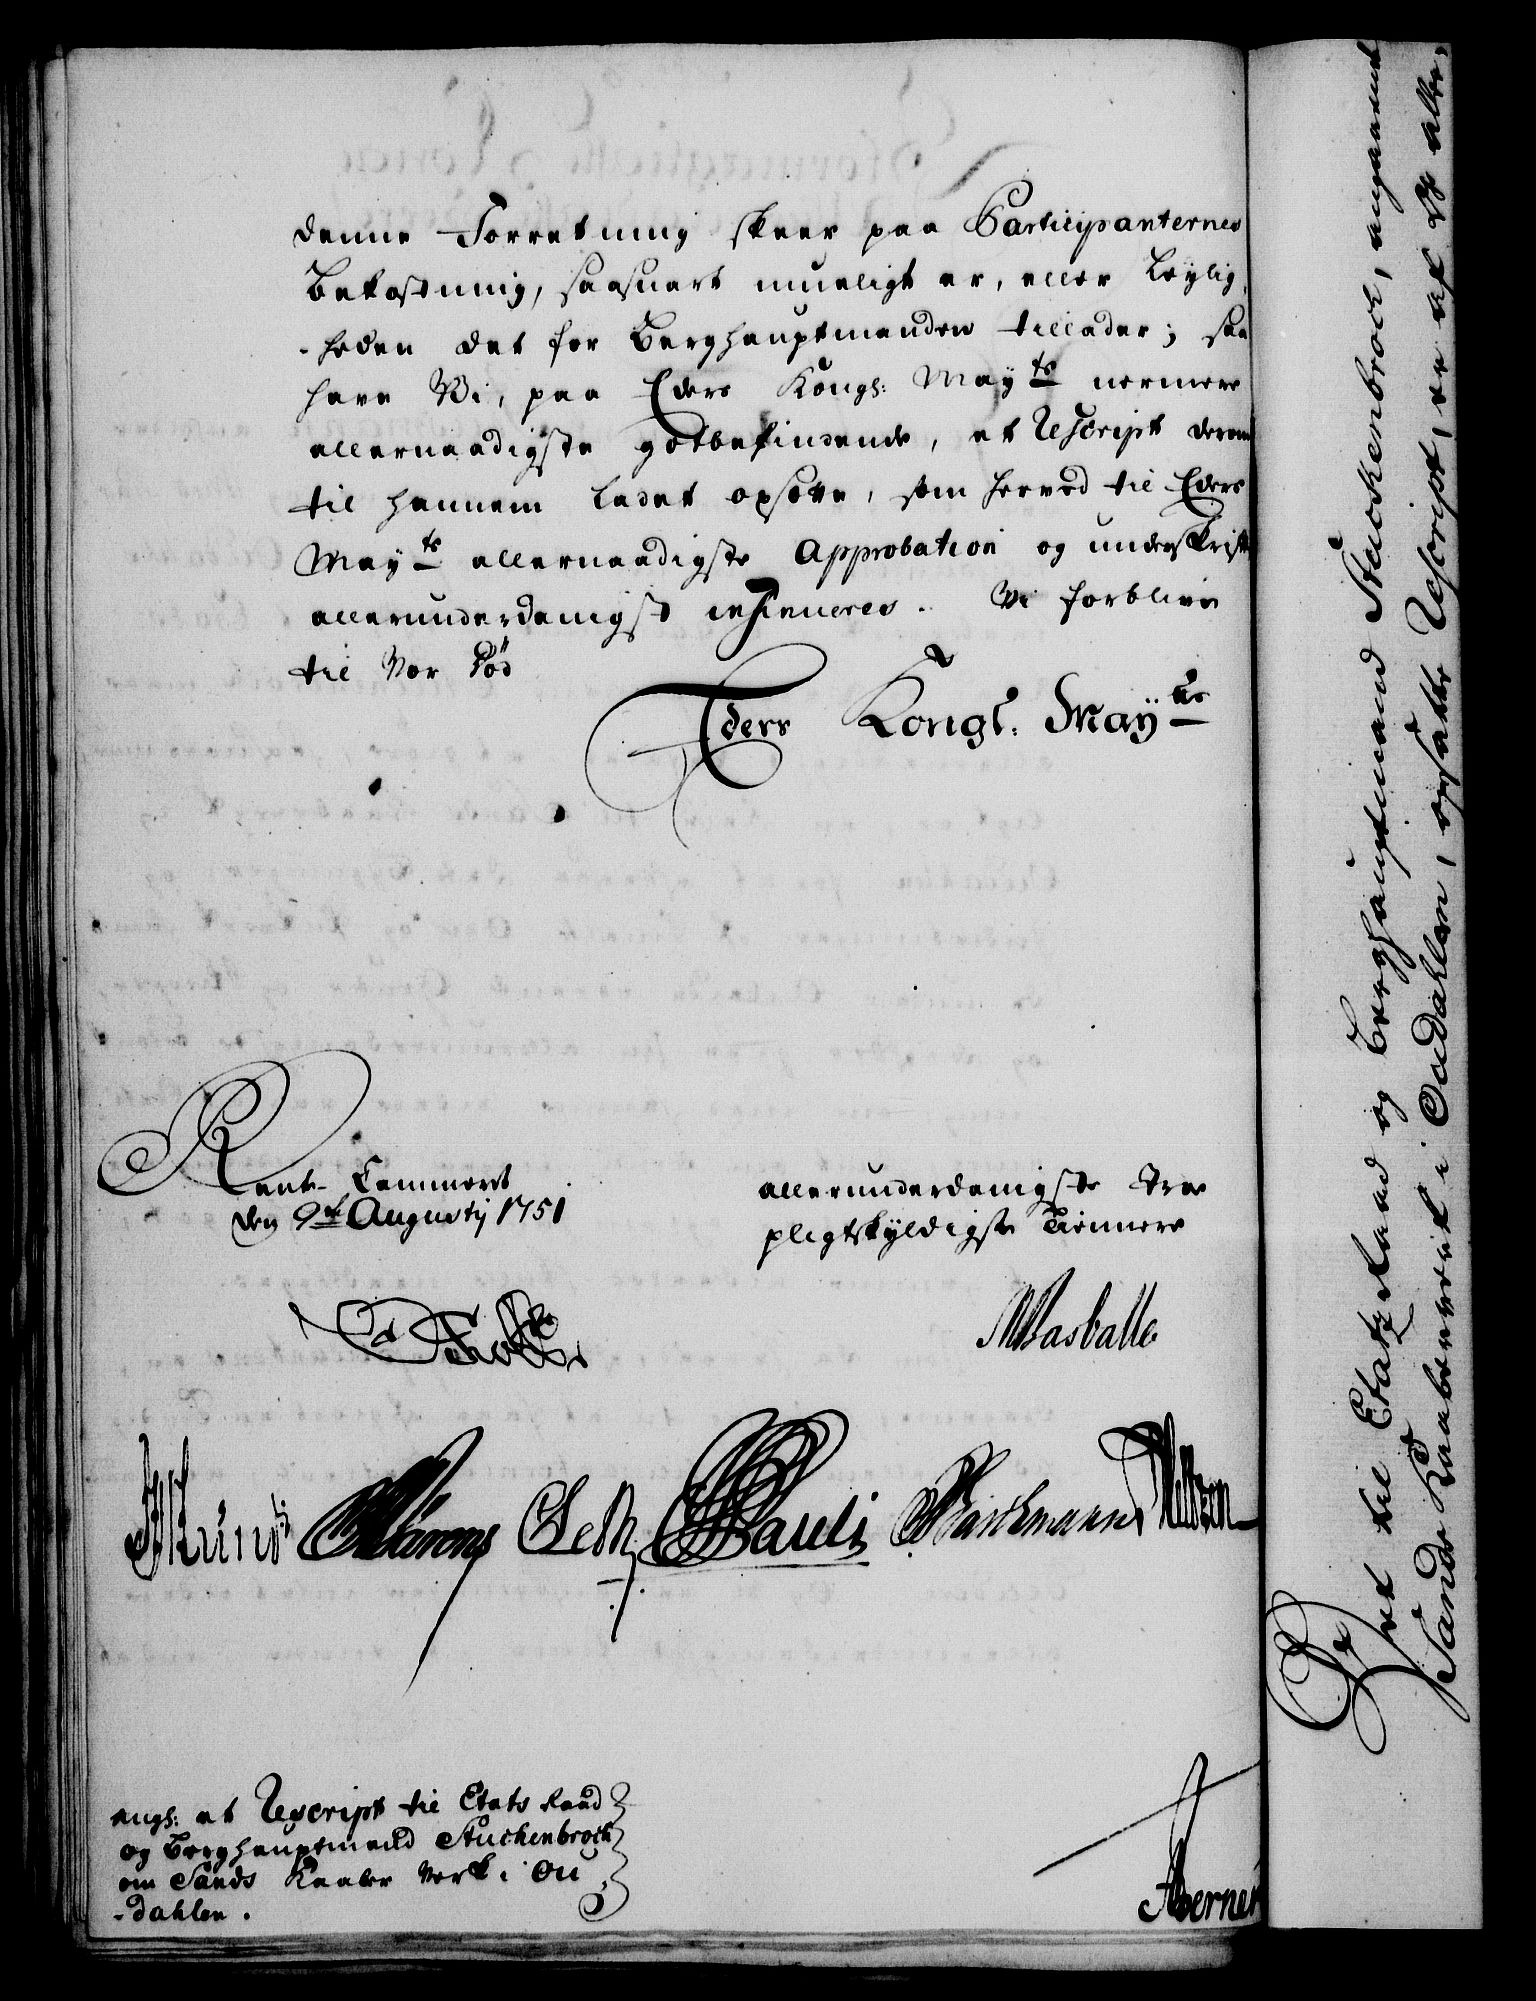 denne Forretning skeer paa Participanternes
Bekostning, saasnart mueligt er, eller Leylig-
-heden det for Berghauptmanden tillader; saa
have Vi, paa Eders Kongl: Mayts nermere
allernaadigste gotbefindende, et Rescript derom
til hannem ladet opsætte, som herved til Eders
Mayts allernaadigste Approbation og underskrift
allerunderdanigst insinueres. Vi forblive
til Vor Död
Eders Kongl. Mayts
Rente-Cammeret
den 9de Augustij 1751
allerunderdanigste troe
pligtskyldigste Tiennere
Holst
Rasballe
Lund Pauli Barchmann
angl: et Rescript til Etats Raad
og Berghauptmand Stuckenbrock
om Sands Kaaber Verk i Ou
-dahlen.
Berner
Det til Etatz Raad og berghauptmand Stuckenbrock, angaaende
Sands Kaaberverk i Oudahlen, opsatte Rescript, er af Os aller-